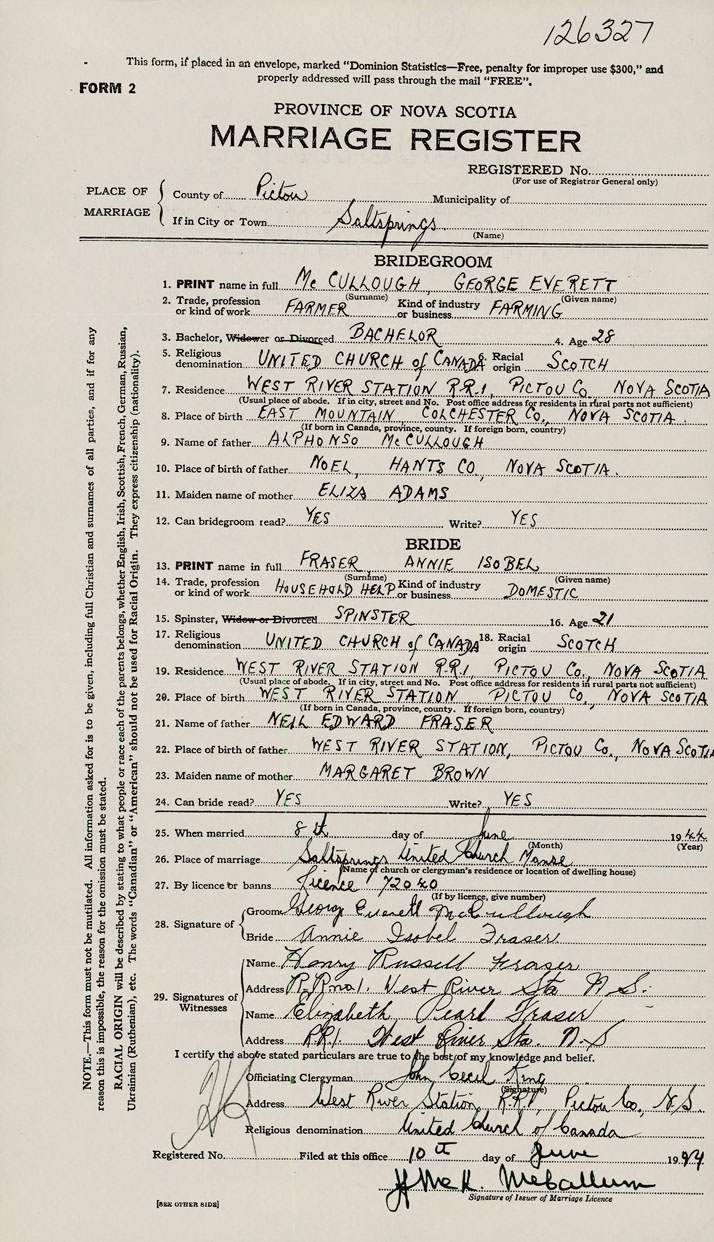 126327
This form, if placed in an envelope, marked "Dominion Statistics—Free, penalty for improper use $300," and
properly addressed will pass through the mail "FREE".
FORM 2
PROVINCE OF NOVA SCOTIA
MARRIAGE REGISTER
REGISTERED No.
(For use of Registrar General only)
PLACE OF MARRIAGE
County of Pictou Municipality of
If in City or Town Saltsprings
(Name)
BRIDEGROOM
1. PRINT name in full McCULLOUGH GEORGE EVERETT
(Surname) (Given name)
2. Trade, profession or kind of work FARMER Kind of industry or business FARMING
3. Bachelor, Widower or Divorced BACHELOR 4. Age 28
5. Religious denomination UNITED CHURCH of CANADA 6. Racial origin SCOTCH
7. Residence WEST RIVER STATION R.R.1, PICTOU Co, NOVA SCOTIA
(Usual place of abode. If in city, street and No. Post office address for residents in rural parts not sufficient)
8. Place of birth EAST MOUNTAIN COLCHESTER Co., NOVA SCOTIA.
(If born in Canada, province, county. If foreign born, country)
9. Name of father ALPHONSO McCULLOUGH
10. Place of birth of father NOEL, HANTS CO, NOVA SCOTIA.
11. Maiden name of mother ELIZA ADAMS
12. Can bridegroom read? YES Write? YES
BRIDE
13. PRINT name in full FRASER ANNIE ISOBEL
(Surname) (Given name)
14. Trade, profession or kind of work HOUSEHOLD HELP Kind of industry or business DOMESTIC
15. Spinster, Widow or Divorced SPINSTER 16. Age 21
17. Religious denomination UNITED CHURCH of CANADA 18. Racial origin SCOTCH
19. Residence WEST RIVER STATION R.R.1, PICTOU Co, NOVA SCOTIA
(Usual place of abode. If in city, street and No. Post office address for residents in rural parts not sufficient)
20. Place of birth WEST RIVER STATION PICTOU Co, NOVA SCOTIA
(If born in Canada, province, county. If foreign born, country)
21. Name of father NEIL EDWARD FRASER
22. Place of birth of father WEST RIVER STATION, PICTOU Co., NOVA SCOTIA
23. Maiden name of mother MARGARET BROWN
24. Can bride read? YES Write? YES
25. When married 8th day of June 1944
(Month) (Year)
26. Place of marriage Saltsprings United Church Manse
(Name of church or clergyman's residence or location of dwelling house)
27. By licence or banns Licence 72040
(If by licence, give number)
28. Signature of
Groom George Everett McCullough
Bride Annie Isobel Fraser
29. Signatures of Witnesses
Name Henry Russell Fraser
Address R.R no 1. West River Sta N.S.
Name Elizabeth Pearl Fraser
Address R.R.1. West River Sta. N.S
I certify the above stated particulars are true to the best of my knowledge and belief.
Officiating Clergyman John Cecil King
(Signature)
Address West River Station, R.R.1, Pictou Co, N.S.
Religious denomination United Church of Canada
Registered No. Filed at this office 10th day of June 1944
McCallum
Signature of Issuer of Marriage Licence
[SEE OTHER SIDE]
NOTE.—This form must not be mutilated. All information asked for is to be given, including full Christian and surnames of all parties, and if for any
reason this is impossible, the reason for the omission must be stated.
RACIAL ORIGIN will be described by stating to what people or race each of the parents belongs, whether English, Irish, Scottish, French, German, Russian,
Ukrainian (Ruthenian), etc. The words "Canadian" or "American" should not be used for Racial Origin. They express citizenship (nationality).